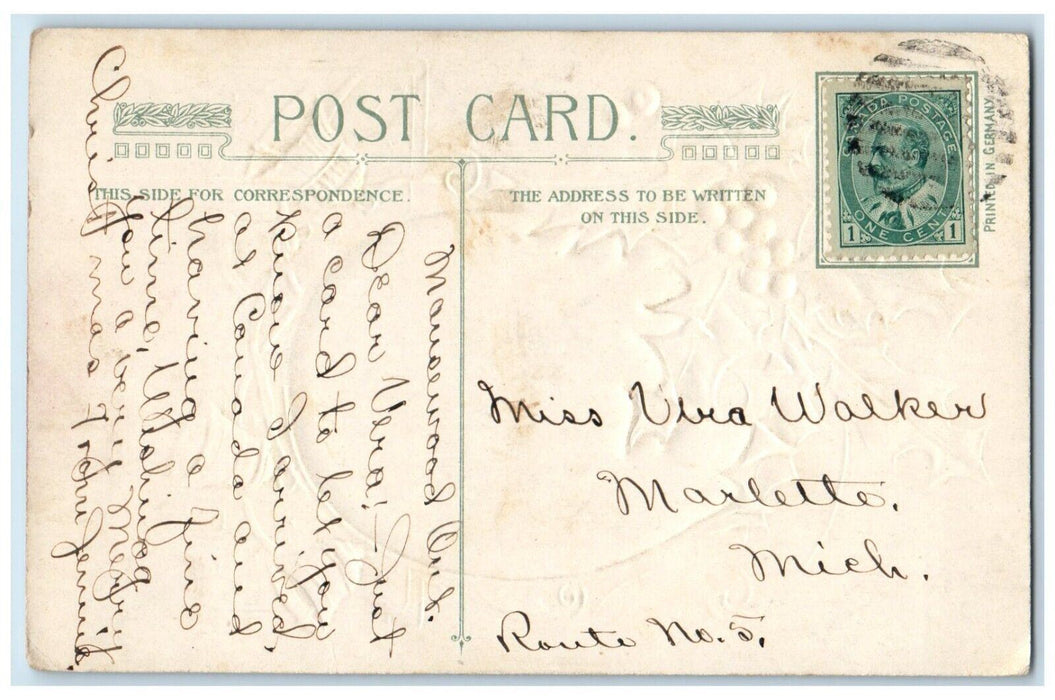 POST CARD.
THIS SIDE FOR CORRESPONDENCE.
THE ADDRESS TO BE WRITTEN
ON THIS SIDE.
CANADA POSTAGE
1 ONE CENT 1
PRINTED IN GERMANY
Miss Vera Walker
Marlette.
Mich.
Route No. 5.
Ont.
Dear Vera:- Just
a card to let you
know I arrived
at Canada and
having a fine
time, Wishing
you a very Merry
Christmas From